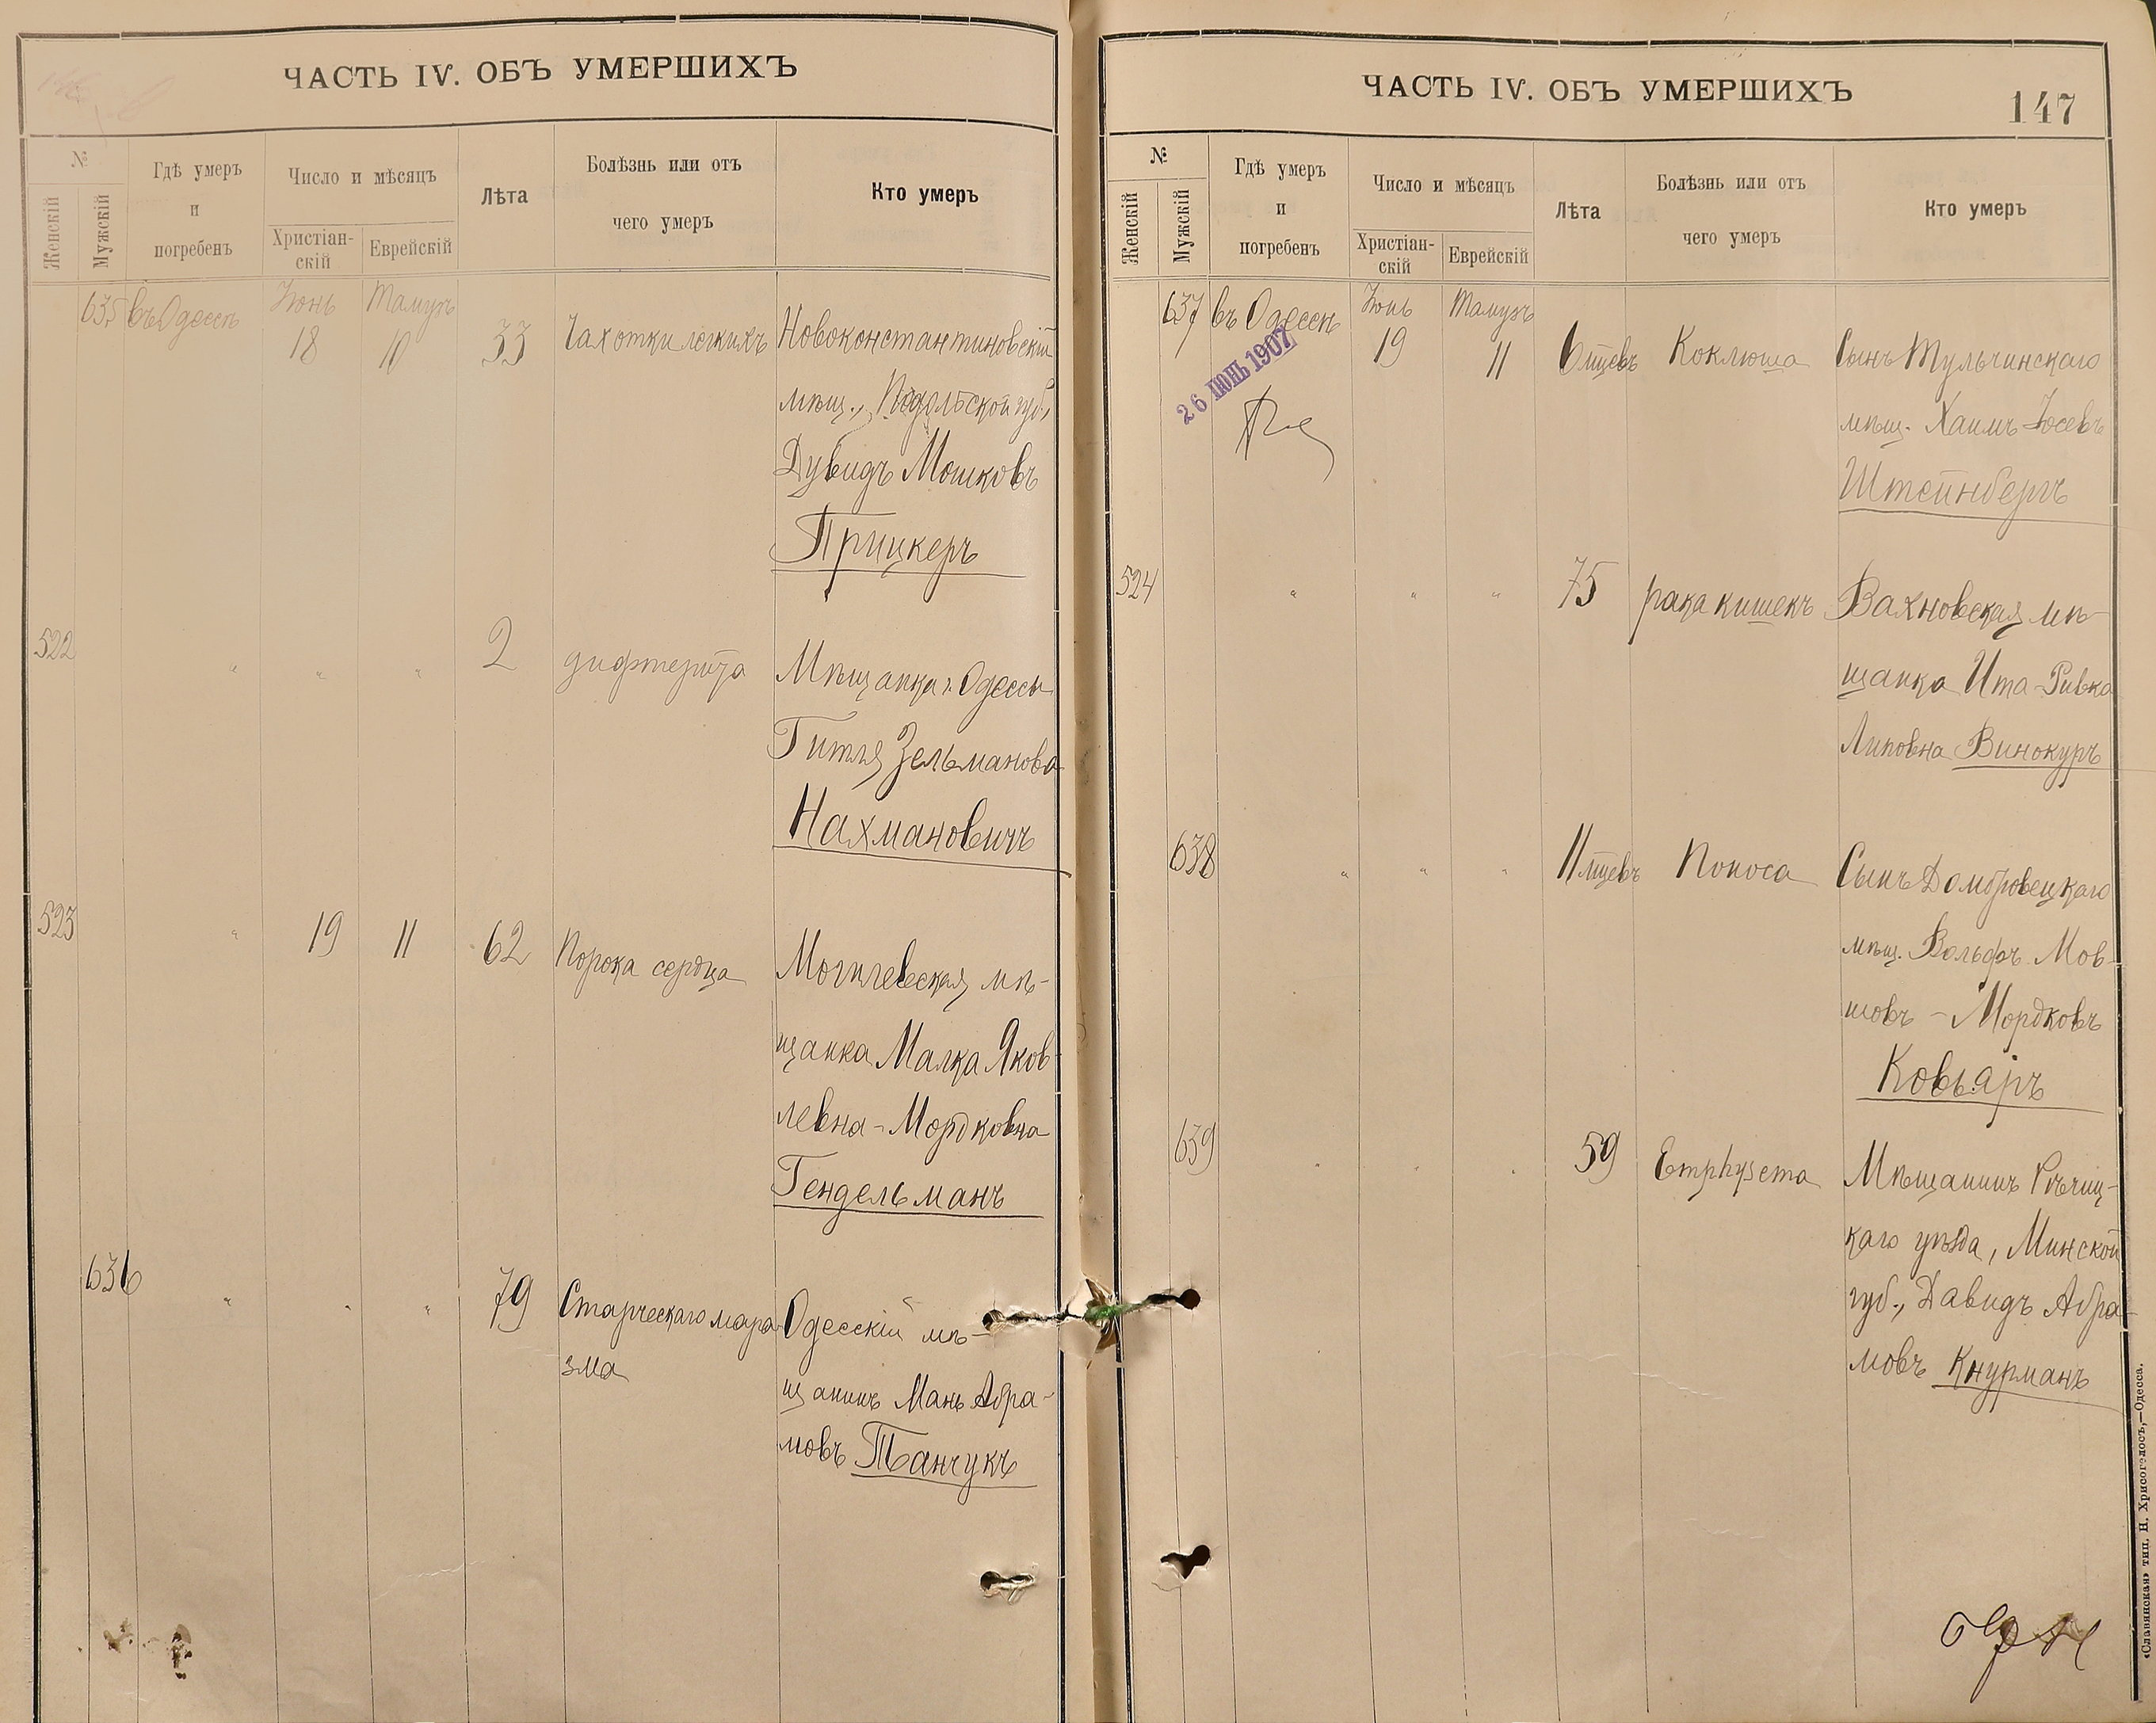 ЧАСТЬ IV. ОБЪ УМЕРШИХЪ
№
Женскій
Мужскій
Гдѣ умеръ
и
погребенъ
Число и мѣсяцъ
Христіан-
скій
Еврейскій
Лѣта
Болѣзнь или отъ
чего умеръ
Кто умеръ
635 въ Одессѣ Іюнь 18 Тамузъ 10 33 Чахотки легкихъ Новоконстантиновскій
мѣщ., Подольской губ.,
Дувидъ Мошковъ
Прицкеръ
522 " " " 2 дифтерита Мѣщанка г. Одессы
Гитля Зельманова
Нахмановичъ
523 " 19 11 62 Порока сердца Могилевская мѣ-
щанка Малка Яков-
левна-Мордковна
Гендельманъ
636 " " " 79 Старческаго мара- Одесскій мѣ-
зма
щанинъ Мань Абра-
мовъ Танчукъ
ЧАСТЬ IV. ОБЪ УМЕРШИХЪ
147
№
Женскій
Мужскій
Гдѣ умеръ
и
погребенъ
Число и мѣсяцъ
Христіан-
скій
Еврейскій
Лѣта
Болѣзнь или отъ
чего умеръ
Кто умеръ
637 въ Одессѣ Іюнь 19 Тамузъ 11 6 мцевъ Коклюша Сынъ Тульчинскаго
26 ІЮНЬ 1907
мѣщ. Хаимъ Іосевъ
Штейнбергъ
524 " " " 75 рака кишекъ Вахновская мѣ-
щанка Ита-Ривка
Липовна Винокуръ
638 " " " 11 мцевъ Поноса Сынъ Домбровецкаго
мѣщ. Вольфъ Мов-
шовъ - Мордковъ
Ковьаръ
639 " " " 59 Emphysema Мѣщанинъ Рѣчиц-
каго уѣзда, Минской
губ., Давидъ Абра-
мовъ Кнурманъ
«Славянская» тип. Н. Хрисогелосъ,—Одесса.